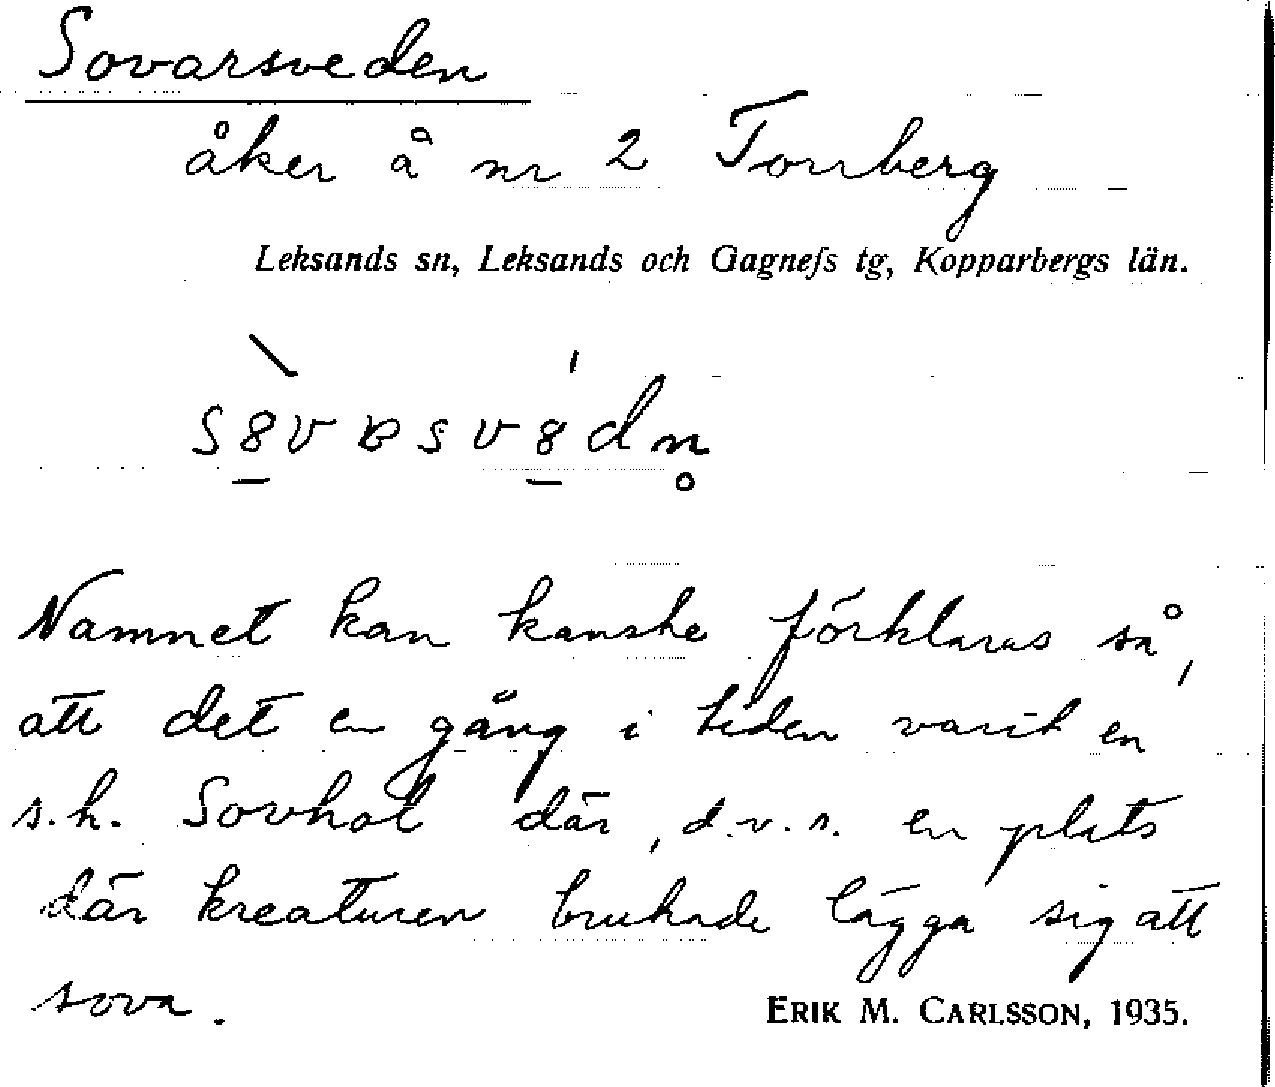 Sovarsveden
åker å nr 2 Torrberg
Leksands sn, Leksands och Gagnefs tg, Kopparbergs län.
Namnet kan kanske förklaras så,
att det en gång i tiden varit en
s.k. Sovhol där, d.v.s. en plats
där kreaturen brukade lägga sig att
sova.
ERIK M. CARLSSON, 1935.